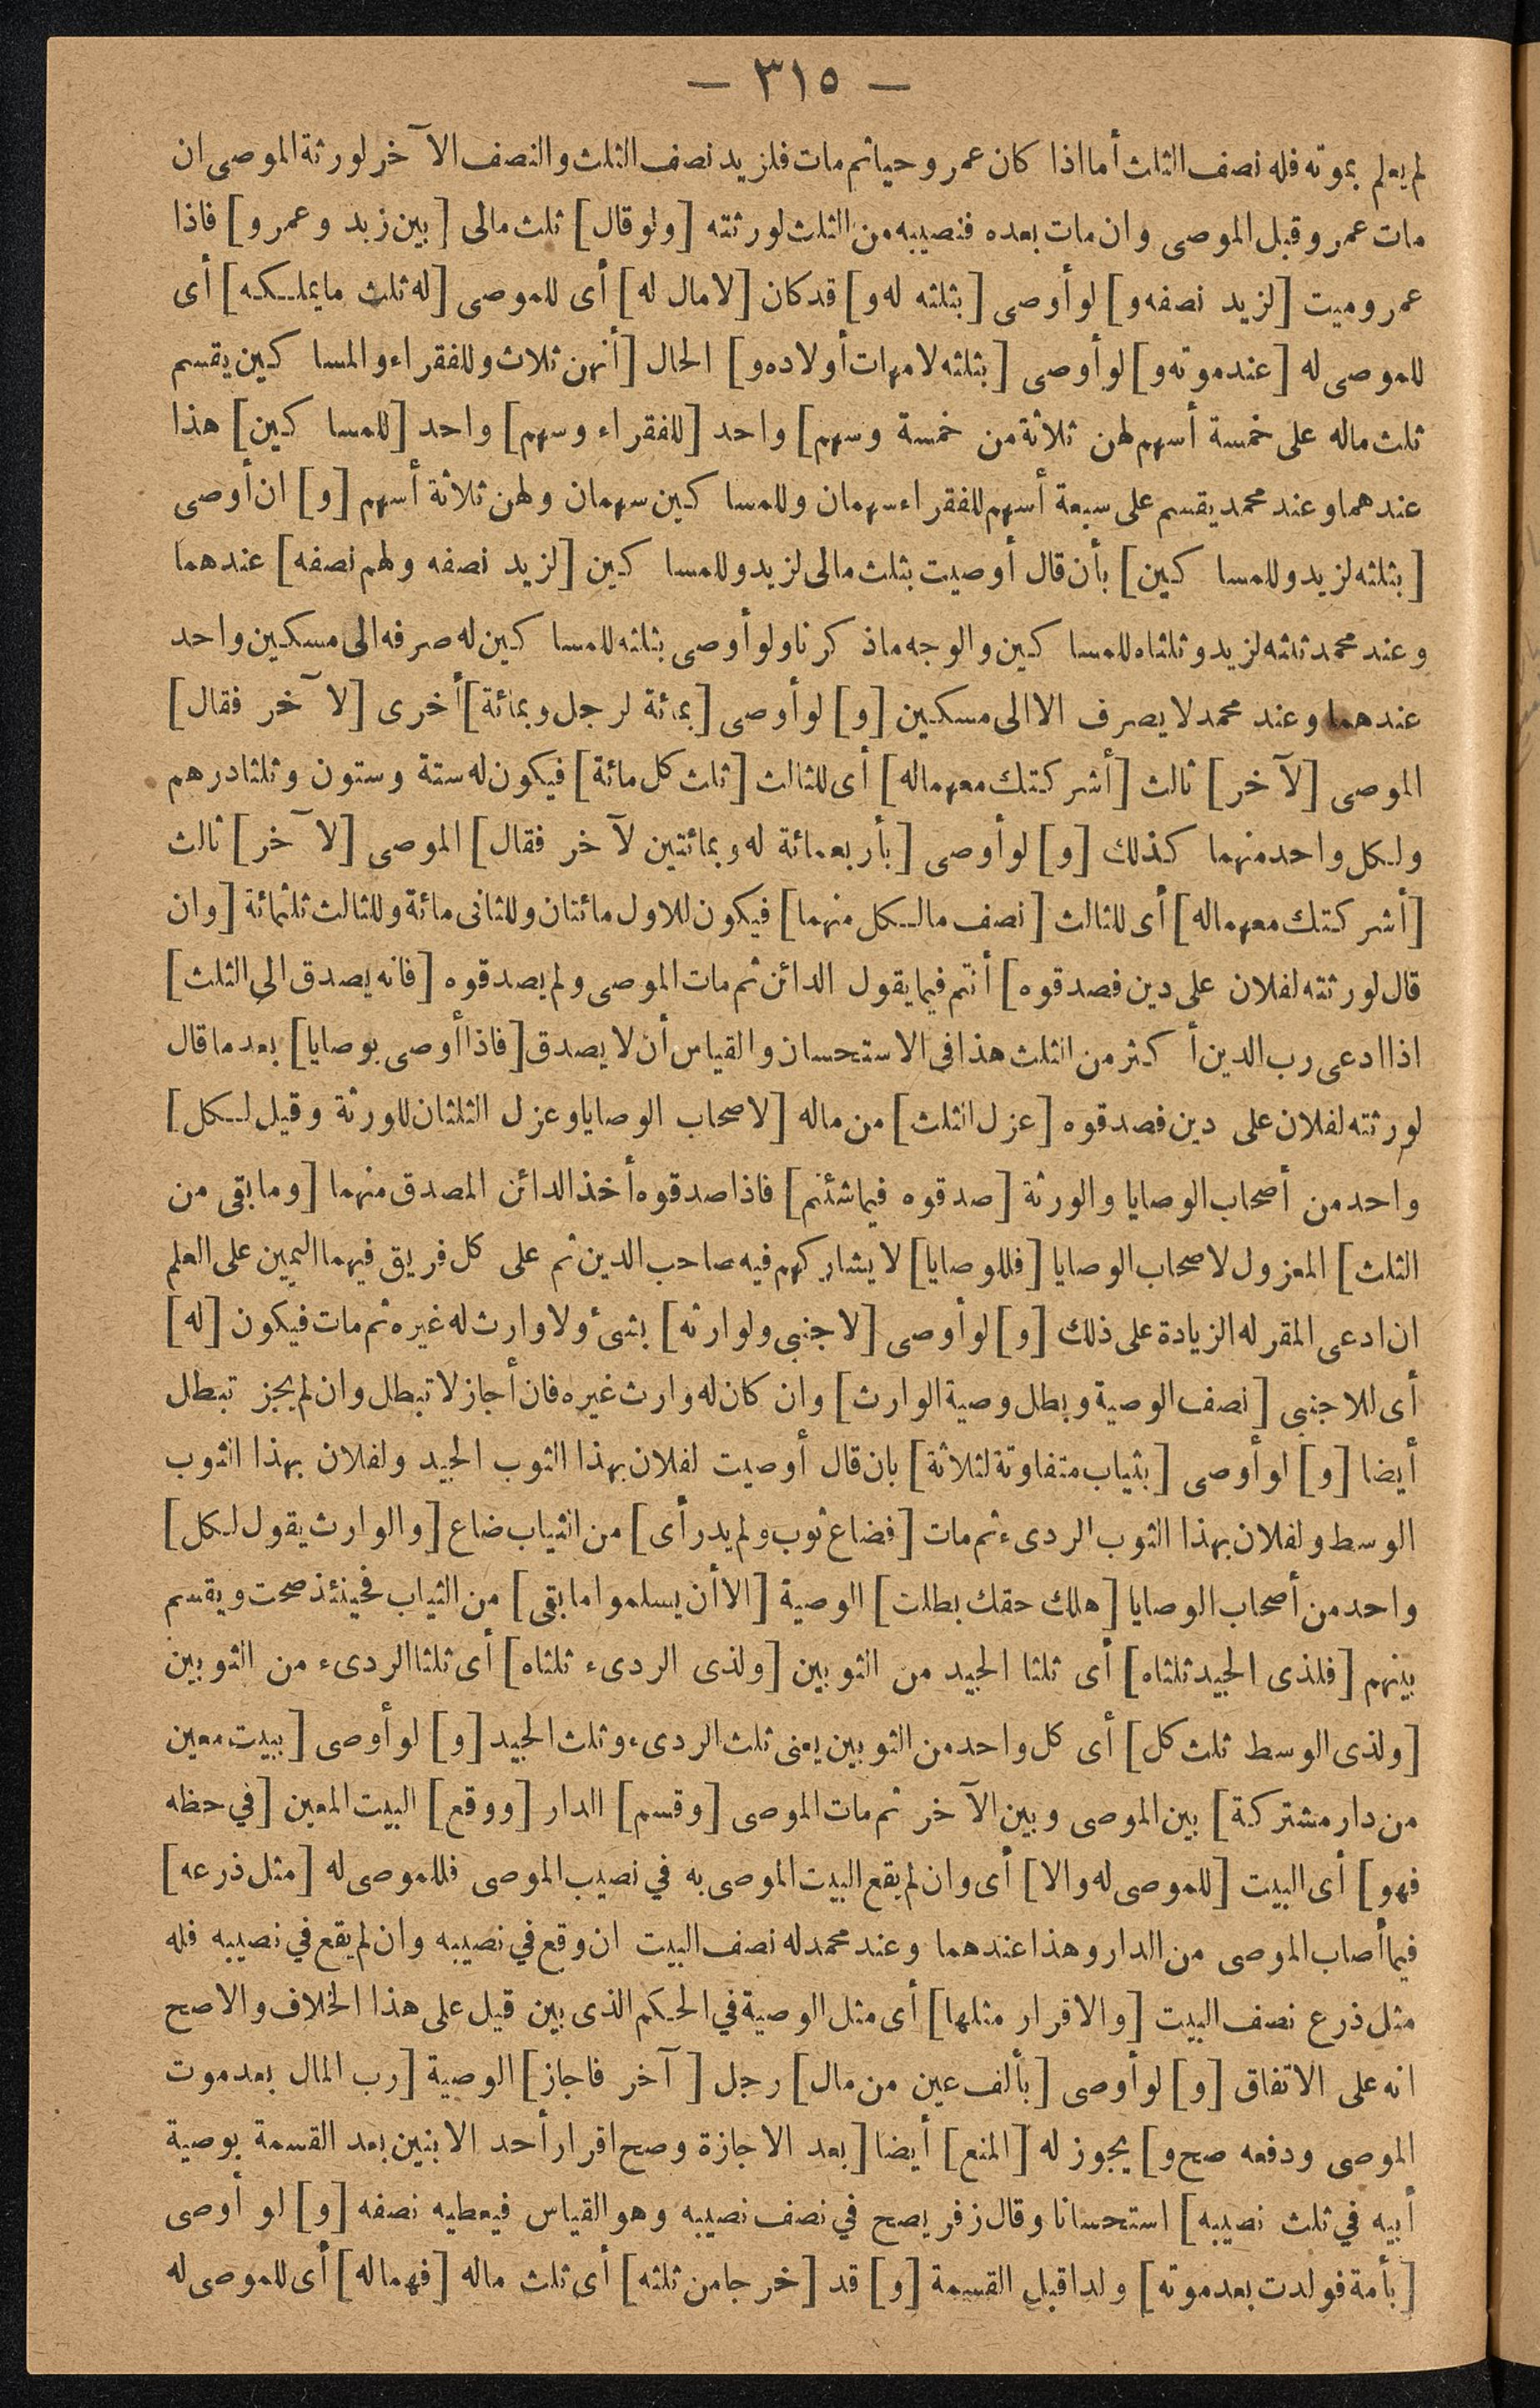 — ٣١٥ —
لم يعلم بموته فله نصف الثلث أما اذا كان عمرو حيا ثم مات فلزيد نصف الثلث والنصف الآخر لورثة الموصى ان
مات عمرو قبل الموصى وان مات بعده فنصيبه من الثلث لورثته [ولو قال] ثلث مالى [بين زيد وعمرو] فاذا
عمرو ميت [لزيد نصفه و] لو أوصى [بثلثه له و] قد كان [لا مال له] أى للموصى [له ثلث ما يملكه] أى
للموصى له [عند موته و] لو أوصى [بثلثه لامهات أولاده و] الحال [أنهن ثلاث وللفقراء والمساكين يقسم
ثلث ماله على خمسة أسهم لهن ثلاثة من خمسة وسهم] واحد [للفقراء وسهم] واحد [للمساكين] هذا
عندهما وعند محمد يقسم على سبعة أسهم للفقراء سهمان وللمساكين سهمان ولهن ثلاثة أسهم [و] ان أوصى
[بثلثه لزيد وللمساكين] بأن قال أوصيت بثلث مالى لزيد وللمساكين [لزيد نصفه ولهم نصفه] عندهما
وعند محمد ثلثه لزيد وثلثاه للمساكين والوجه ما ذكرنا ولو أوصى بثلثه للمساكين له صرفه الى مسكين واحد
عندهما وعند محمد لا يصرف الا الى مسكين [و] لو أوصى [بمائة لرجل وبمائة] أخرى [لآخر فقال]
الموصى [لآخر] ثالث [أشركتك معهما له] أى للثالث [ثلث كل مائة] فيكون له ستة وستون وثلثا درهم
ولكل واحد منهما كذلك [و] لو أوصى [بأربعمائة له وبمائتين لآخر فقال] الموصى [لآخر] ثالث
[أشركتك معهما له] أى للثالث [نصف ما لكل منهما] فيكون للاول مائتان وللثانى مائة وللثالث ثلثمائة [وان
قال لورثته لفلان على دين فصدقوه] أنتم فيما يقول الدائن ثم مات الموصى ولم يصدقوه [فانه يصدق الى الثلث]
اذا ادعى رب الدين أكثر من الثلث هذا فى الاستحسان والقياس أن لا يصدق [فاذا أوصى بوصايا] بعد ما قال
لورثته لفلان على دين فصدقوه [عزل الثلث] من ماله [لاصحاب الوصايا وعزل الثلثان للورثة وقيل لكل]
واحد من أصحاب الوصايا والورثة [صدقوه فيما شئتم] فاذا صدقوه أخذ الدائن المصدق منهما [وما بقى من
الثلث] المعزول لاصحاب الوصايا [فللوصايا] لا يشاركهم فيه صاحب الدين ثم على كل فريق فيهما اليمين على العلم
ان ادعى المقر له الزيادة على ذلك [و] لو أوصى [لاجنبى ولوارثه] بشئ ولا وارث له غيره ثم مات فيكون [له]
أى للاجنبى [نصف الوصية وبطل وصية الوارث] وان كان له وارث غيره فان أجاز لا تبطل وان لم يجز تبطل
أيضا [و] لو أوصى [بثياب متفاوتة لثلاثة] بان قال أوصيت لفلان بهذا الثوب الجيد ولفلان بهذا الثوب
الوسط ولفلان بهذا الثوب الردىء ثم مات [فضاع ثوب ولم يدر أى] من الثياب ضاع [والوارث يقول لكل]
واحد من أصحاب الوصايا [هلك حقك بطلت] الوصية [الا أن يسلموا ما بقى] من الثياب فحينئذ صحت ويقسم
بينهم [فلذى الجيد ثلثاه] أى ثلثا الجيد من الثوبين [ولذى الردىء ثلثاه] أى ثلثا الردىء من الثوبين
[ولذى الوسط ثلث كل] أى كل واحد من الثوبين يعنى ثلث الردىء وثلث الجيد [و] لو أوصى [ببيت معين
من دار مشتركة] بين الموصى وبين الآخر ثم مات الموصى [وقسم] الدار [ووقع] البيت المعين [في حظه
فهو] أى البيت [للموصى له والا] أى وان لم يقع البيت الموصى به في نصيب الموصى فللموصى له [مثل ذرعه]
فيما أصاب الموصى من الدار وهذا عندهما وعند محمد له نصف البيت ان وقع في نصيبه وان لم يقع في نصيبه فله
مثل ذرع نصف البيت [والاقرار مثلها] أى مثل الوصية في الحكم الذى بين قيل على هذا الخلاف والاصح
انه على الاتفاق [و] لو أوصى [بألف عين من مال] رجل [آخر فاجاز] الوصية [رب المال بعد موت
الموصى ودفعه صح و] يجوز له [المنع] أيضا [بعد الاجازة وصح اقرار أحد الابنين بعد القسمة بوصية
أبيه في ثلث نصيبه] استحسانا وقال زفر يصح في نصف نصيبه وهو القياس فيعطيه نصفه [و] لو أوصى
[بأمة فولدت بعد موته] ولدا قبل القسمة [و] قد [خرجا من ثلثه] أى ثلث ماله [فهما له] أى للموصى له